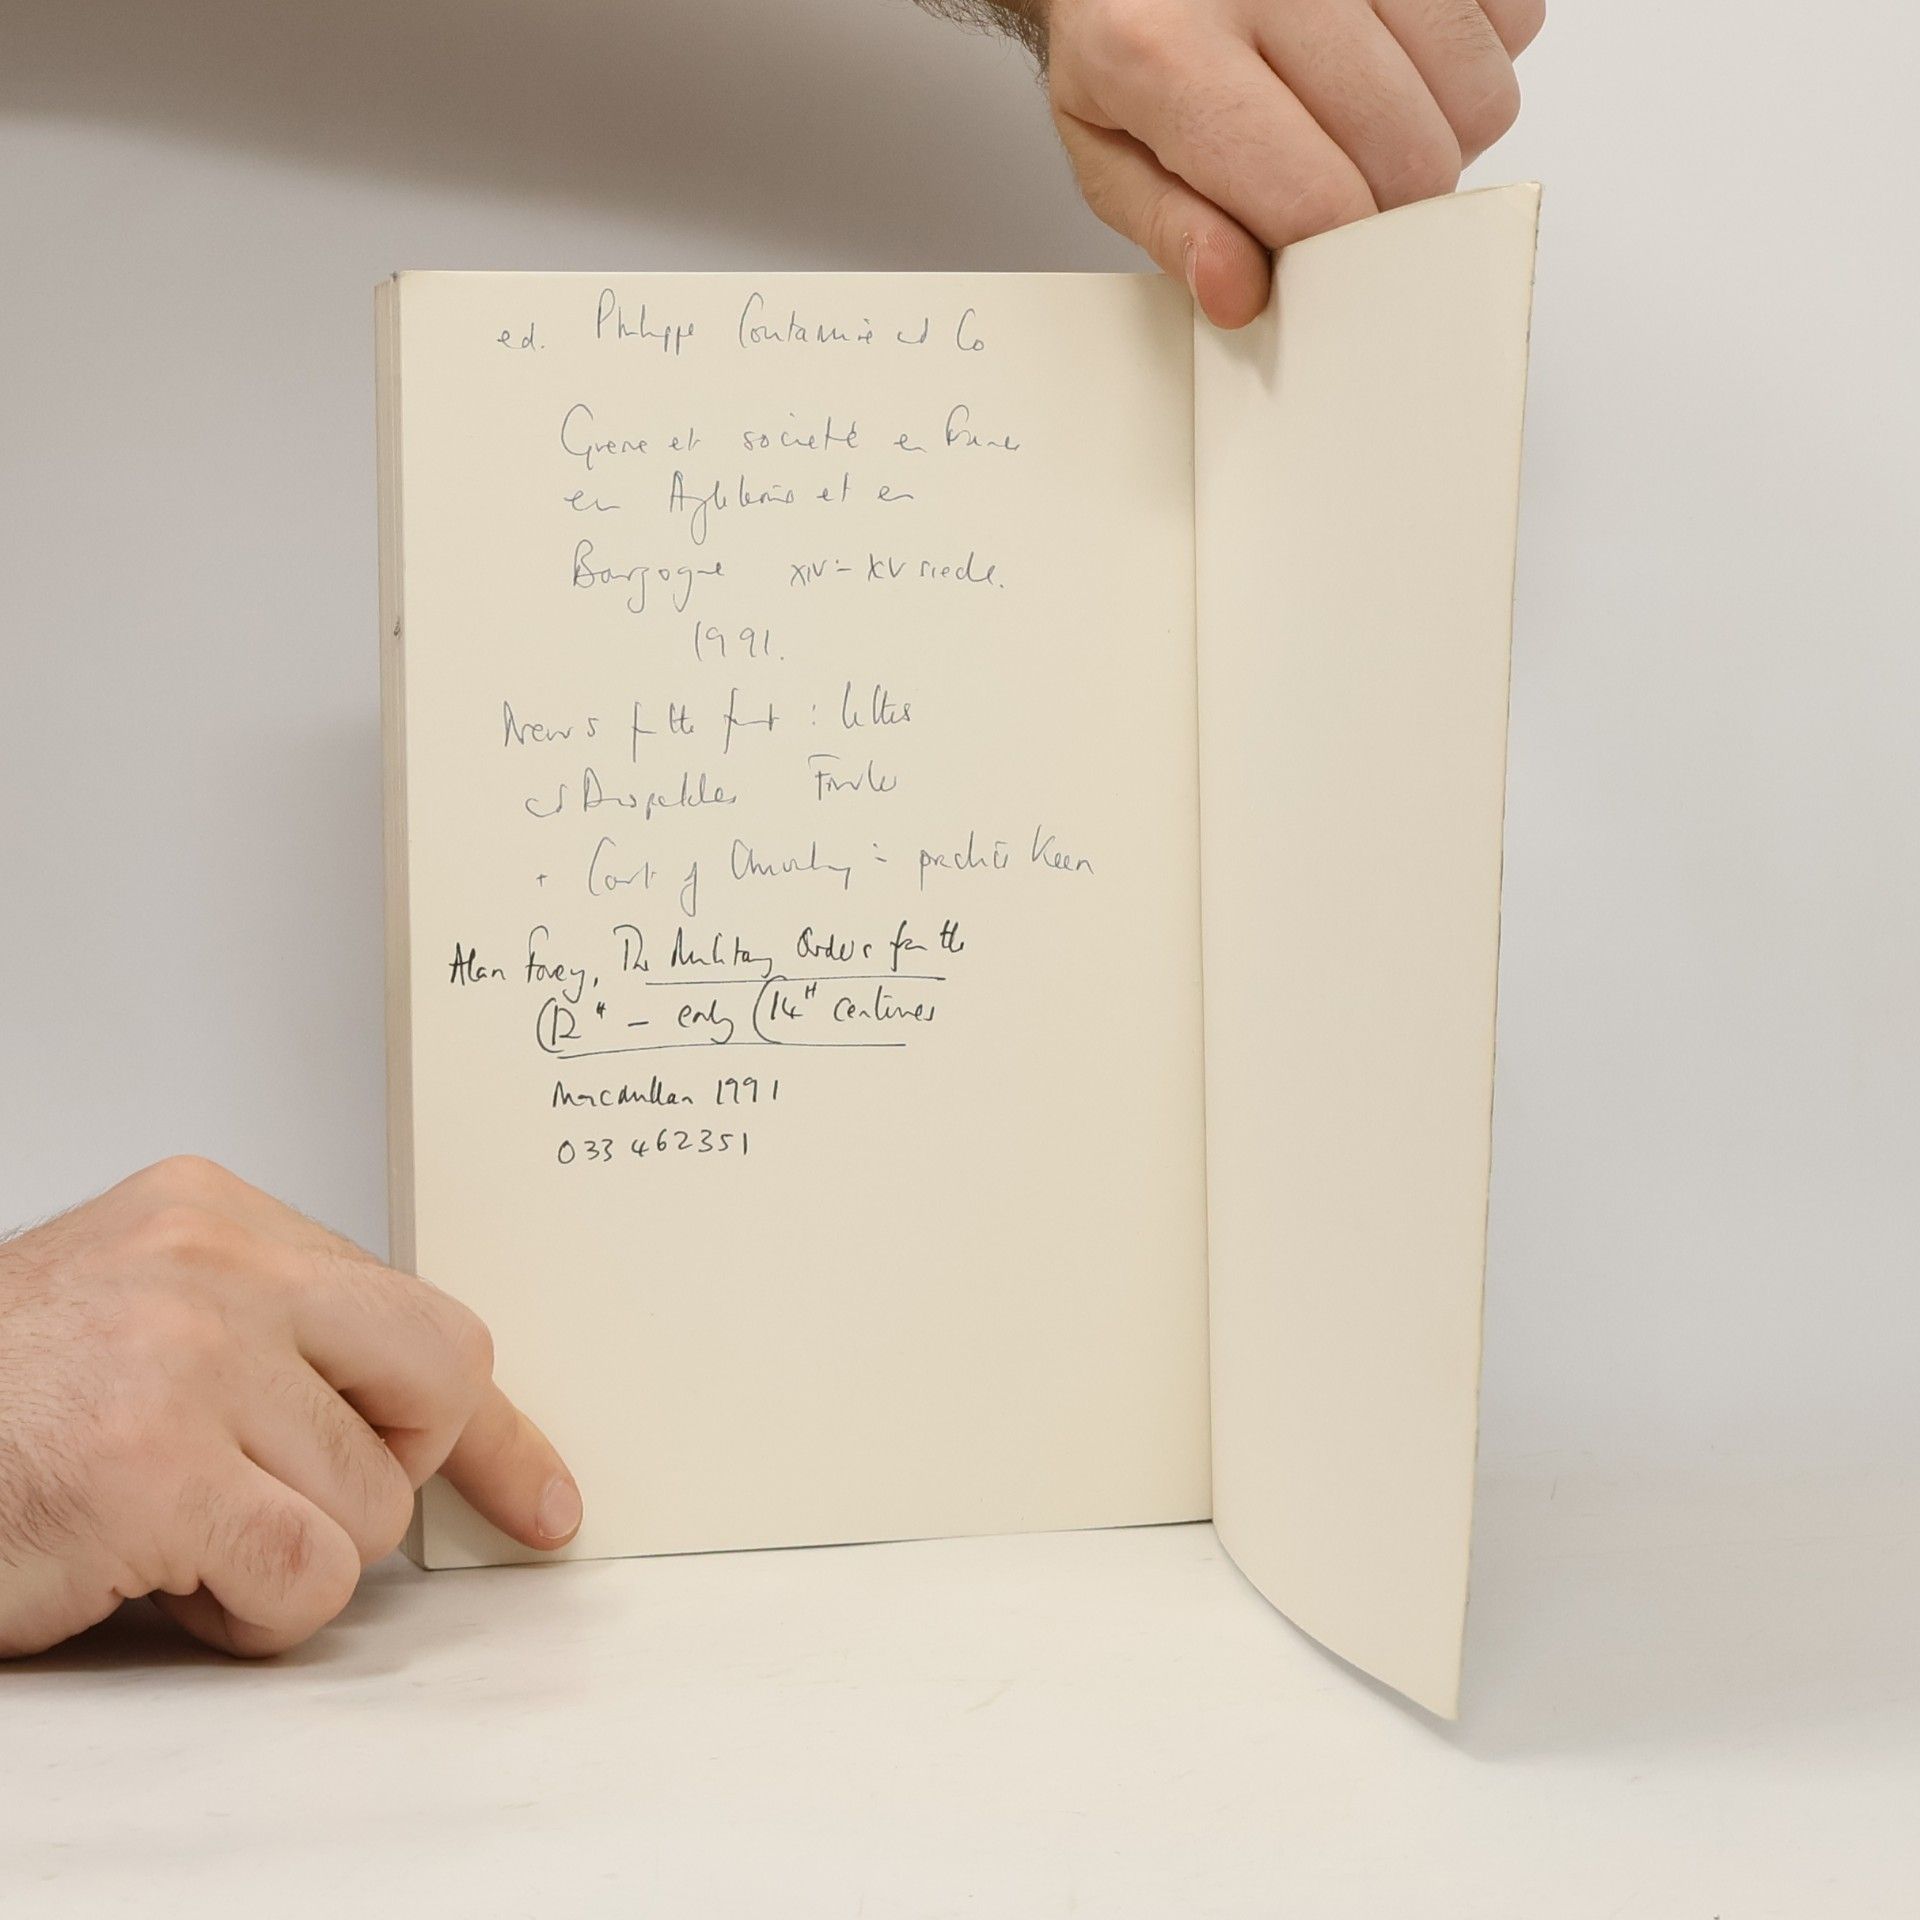 ed. Philippe Contamine and Co
Guerre et société en France
en Angleterre et en
Bourgogne XIV - XV siecle.
1991.
News from the front : letters
and Dispatches Fowler
+ Court of Chivalry - Keen
Alan Forey, The Military Orders from the
C12th - early C14th centuries
Macmillan 1991
033 462351